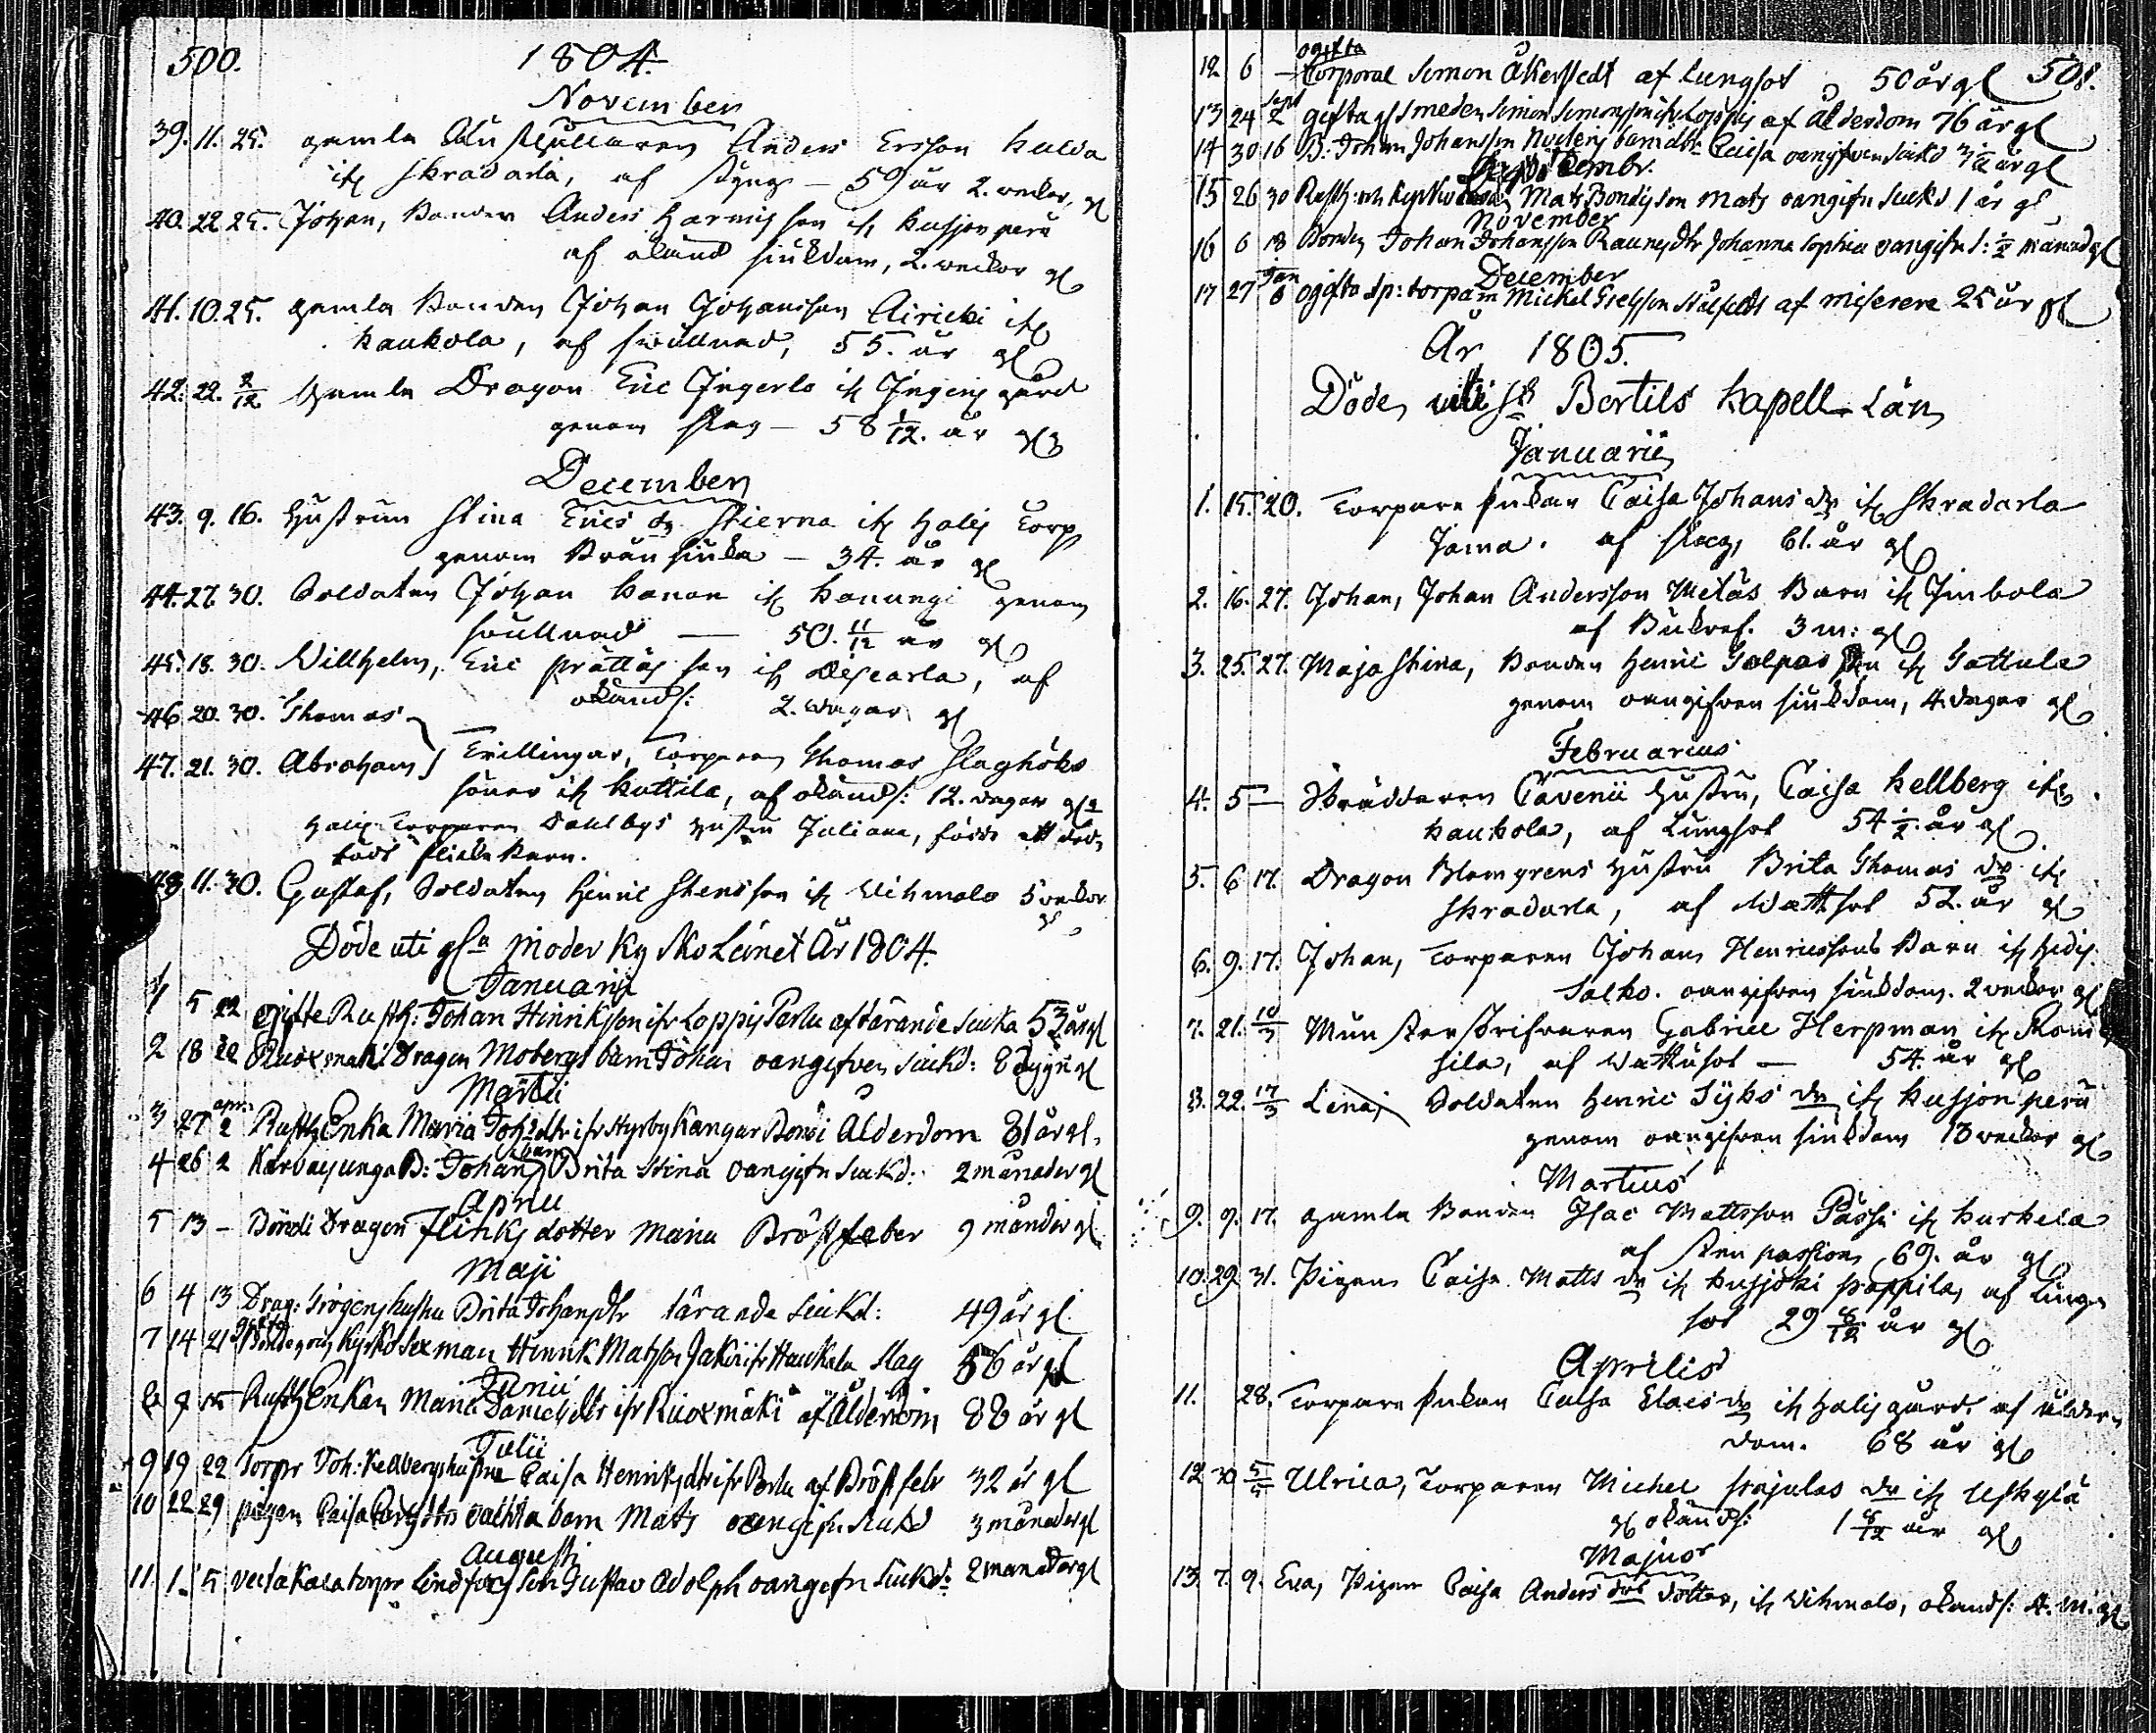 500.
1804.
November
39. 11. 25. gamla Anders Ersson Kulda
ifr Skradarla, af styng — 59 år 2. weckor, gl
40. 22. 25. Johan, Bonden Anders Harmis son ifr Kusjonperä
af okänd siukdom, 2. weckor gl
41. 10. 25. gamla Bonden Johan Johansson Airicki ifr
Kaukola, af swullnad, 55. år gl
42. 22. 2/12. Gamla Dragon Eric Ingerlo ifr Ingeris gård
genom slag — 58 1/12. år gl
December
43. 9. 16. Hustrun Stina Erics dr Stierna ifr Halis Torp
genom Brän siuka — 34. år gl
44. 27. 30. Soldaten Johan Hanon ifr Hanungi genom
swullnad — 50. 11/12 år gl
45. 18. 30. Willhelm, Eric Prättäs son ifr, af
okänd s: 2. dagar gl
46. 20. 30. Thomas
47. 21. 30. Abraham } Tvillingar, Torparen Thomas Slaghöks
söner ifr Kuttila, af okänd s: 12. dagar gl
Halis Torparen Dahlbys hustru Juliana, födde ett död
födt flicke Barn.
48. 11. 30. Gustaf, Soldaten Hinric Stens son ifr Wihmalo 5 weckor
gl
Döde uti Moder Kyrko Länet År 1804.
Januarii
1 5 22 gifte Rusth: Johan Hinriksson ifr Loppis Parlu af tärande siuka 53 år gl
2 18 22 Ruoxmaki Dragon Mobergs barn Johan oangifven siukd: 8 dygn gl
Martii
3 27 apr: 2 Rusth Enka Maria Joh: dtr ifr Hyrby Kangar Bondi Ålderdom 81 år gl.
4 26 2 Karvas unga B: Johans barn Brita Stina oangifn siukd: 2 månader gl
Aprili
5 13 — Böndi Dragon Flinks dotter Maria Bröstfeber 9 månder gl.
Maji
6 4 13 Drag: hustru Brita Johansdtr tärande siukd: 49 år gl.
7 14 21 gifta Kyrko sexman Hinrik Matsson Jakois ifr Haukala slag 56 år gl
Junii
8 9 15 Rusth Enkan Maria Danielsdtr ifr Ruoxmäki af Ålderdom 88 år gl
Julii
9 19 22 Torpr Joh: Kellbergs hustru Caisa Henriksdtr ifr Parlu af Bröst febr 32 år gl
10 22 29 pigan Caisa oächta barn Mats oangifn siukd 3 månader gl
Augusti
11. 1. 5 torpr Lindfors son Gustav Adolph oangifn siukd: 2 månader gl
501.
12 6 — ogifta Corporal Simon Åkerstedt af lungsot 50 år gl
13 24 sept 2 gifta gl smeden Simon Simonsson ifr Loppis af Ålderdom 76 år gl
14 30 16 B: Johan Johansson barn dtr Caisa oangifven siukd 3/12 år gl
September.
15 26 30 Rusth: och Mats Bondis son Mats oangifn siukd 1 år gl
November
16 6 18 Bondes Johan Johansson Raunes dtr Johanna Sophia oangifn s: 1/2 månad gl
December
17 27 Jan 6 ogifta sp: torparn Michel af miserere 25 år gl
År 1805.
Döde, uti St Bertils Kapell Län
Januarii
1. 15. 20. Torpare Enkan Caisa Johans dr ifr Skradarla
Jama. af slag, 61. år gl
2. 16. 27. Johan, Johan Andersson Metäs Barn ifr Jinbola
af Bukref. 3 m: gl
3. 25. 27. Maja Stina, Bonden Henric Talpas dr ifr Tattula
genom oangifven siukdom, 4. dagar gl
Februarius
4. 5 — Skräddaren Cavenii Hustru, Caisa Kellberg ifr
Kaukola, af Lungsot 54 1/2. år gl
5. 6 17. Dragon Blomgrens Hustru Brita Thomas dr ifr
Skradarla, af Wattsot 52. år gl
6. 9. 17. Johan, Torparen Johan Henricssons Barn ifr
Salko. oangifven siukdom. 2 weckor gl
7. 21. 10/3 Mönster Skrifvaren Gabriel Herpman ifr
sila, af Wattusot — 54. år gl
8. 22. 17/3 Lena, Soldaten Henric Sijks dr ifr Kusjonperä
genom oangifven siukdom 13 weckor gl
Martius
9. 9. 17. gamla Bonden Isac Mattsson Passi ifr Kurkela
af sten passion, 69. år gl
10. 29. 31. Pigan Caisa Matts dr ifr Kusjoki Pappila, af Lung
sot 29 8/12 år gl
Aprilis
11. 28. Torpare Enkan Caisa Claes dr ifr Halis gård, af ålder
dom. 68 år gl
12 30 5/5 Ulrica, Torparen Michel dr ifr Uskylä
af okänd s: 1 8/12 år gl
Majus
13. 7. 9. Eva, Pigan Caisa Anders dotter, ifr Wihmalo, okänd s: 4. m. gl